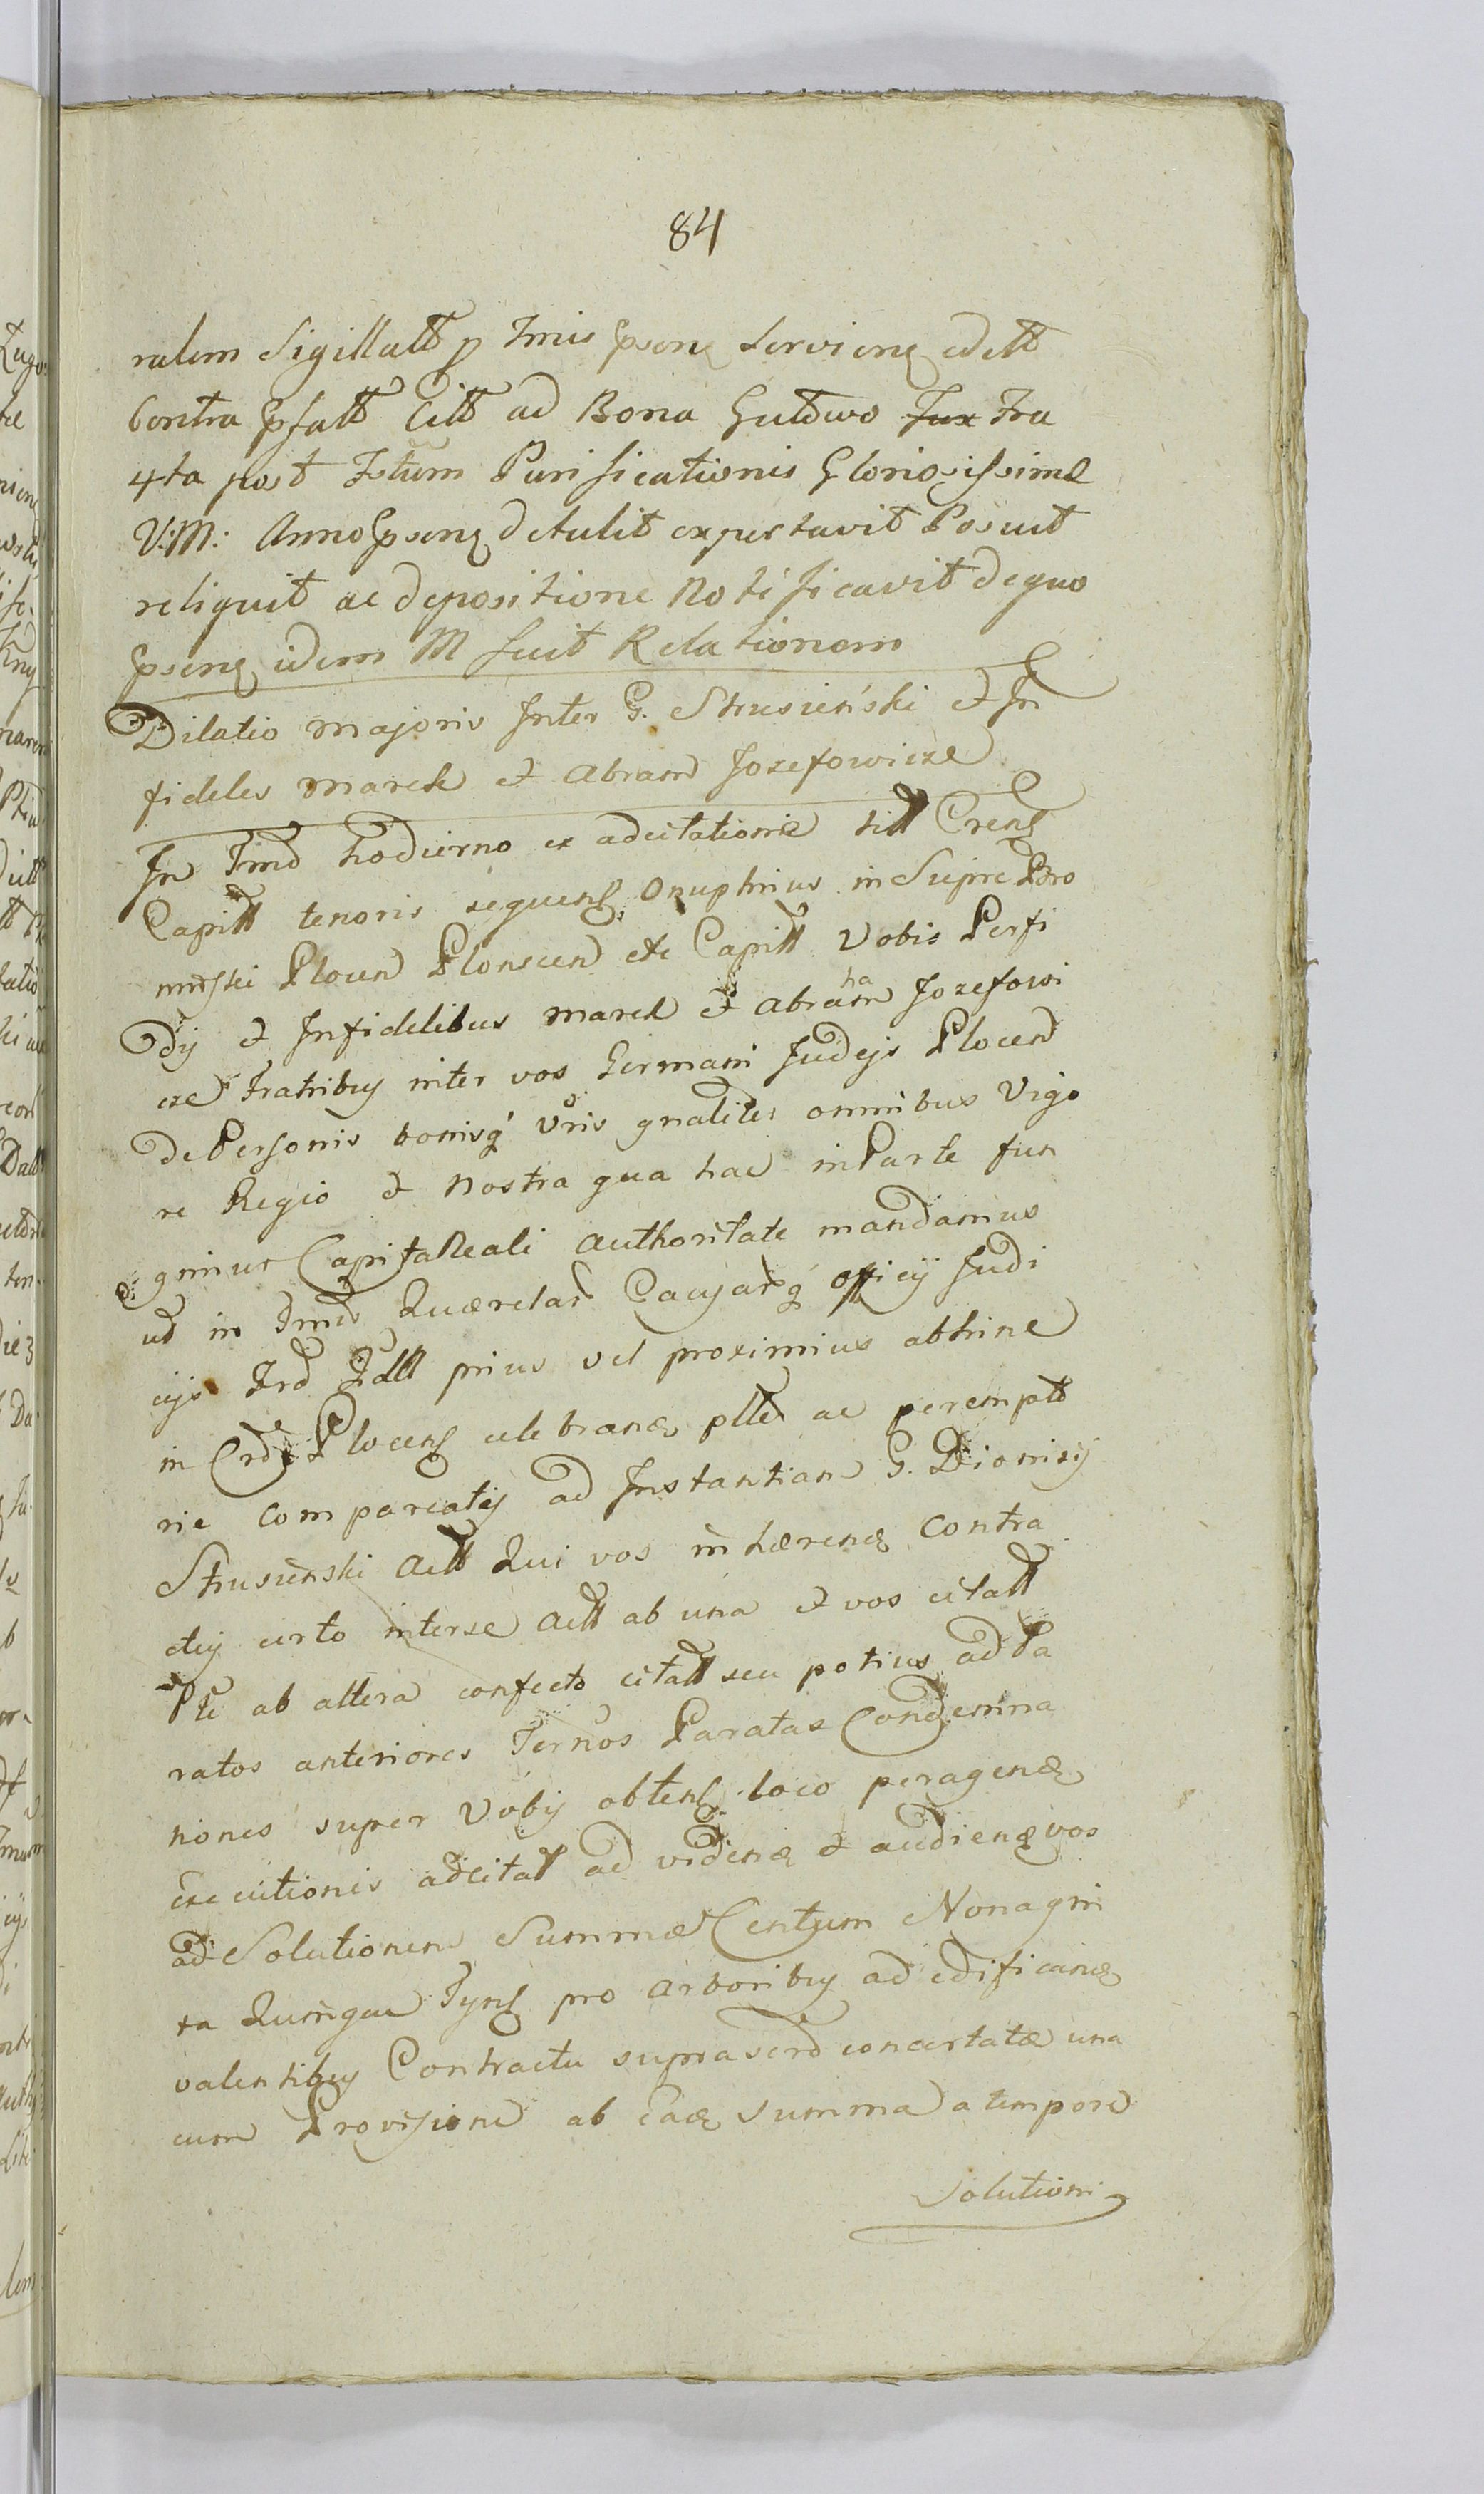 84
ralem Sigillatt p Tmis Pseng Servieng edett
Contra Psatt Citt ad Bona Gutowo Fux Fra
4ta post Fstum Purificationis Gloriosissime
V: M: Anno Pseng detulit exportavit Posuit
reliquit ac depositione Notificavit de quo
Pseng idem M fecit Relationem
Dilatio majoris Inter G. Strusieński et In
fideles marek et Abram Jozefowicze
In Tmo hodierno ex adcitatione
Capitt tenoris sequens Onuphrius in Supre Bro
mirski Plocen Plonscen etc Capitt Vobis Perfi
dij et Infidelibus marek et Abraham Jozefowi
cze Fratribus inter vos Germani Judejs Plocen
De Personis bonisq vris gnaliter omnibus Vigo
re Regio et nostra qua hac in Parte fun
gimur Capitaneali Authoritate mandamus
ut in Tmis Quærelar Causarq officij Judi
cijs prius vel proximius abhinc
in Plocens celebran ac perempto
rie compareatis ad Instantiam G. Dionisij
Strusieński Actt Qui vos inhæren Contra
ctuj certo inter se Actt ab una et vos citatt
Pte ab altera confecto citatt seu potius ad Pa
ratos anteriores Ternos Paratas Condemna
tiones super Vobis obtens loco peragen
Executionis adcitatt ad viden et audien vos
ad Solutionem Summæ Centum Nonagin
ta Quinque Tyns pro arboribus ad edifican
valentibus Contractu suprascrd concertatæ una
cum Provisione ab eade Summa a tempore
Solutioni